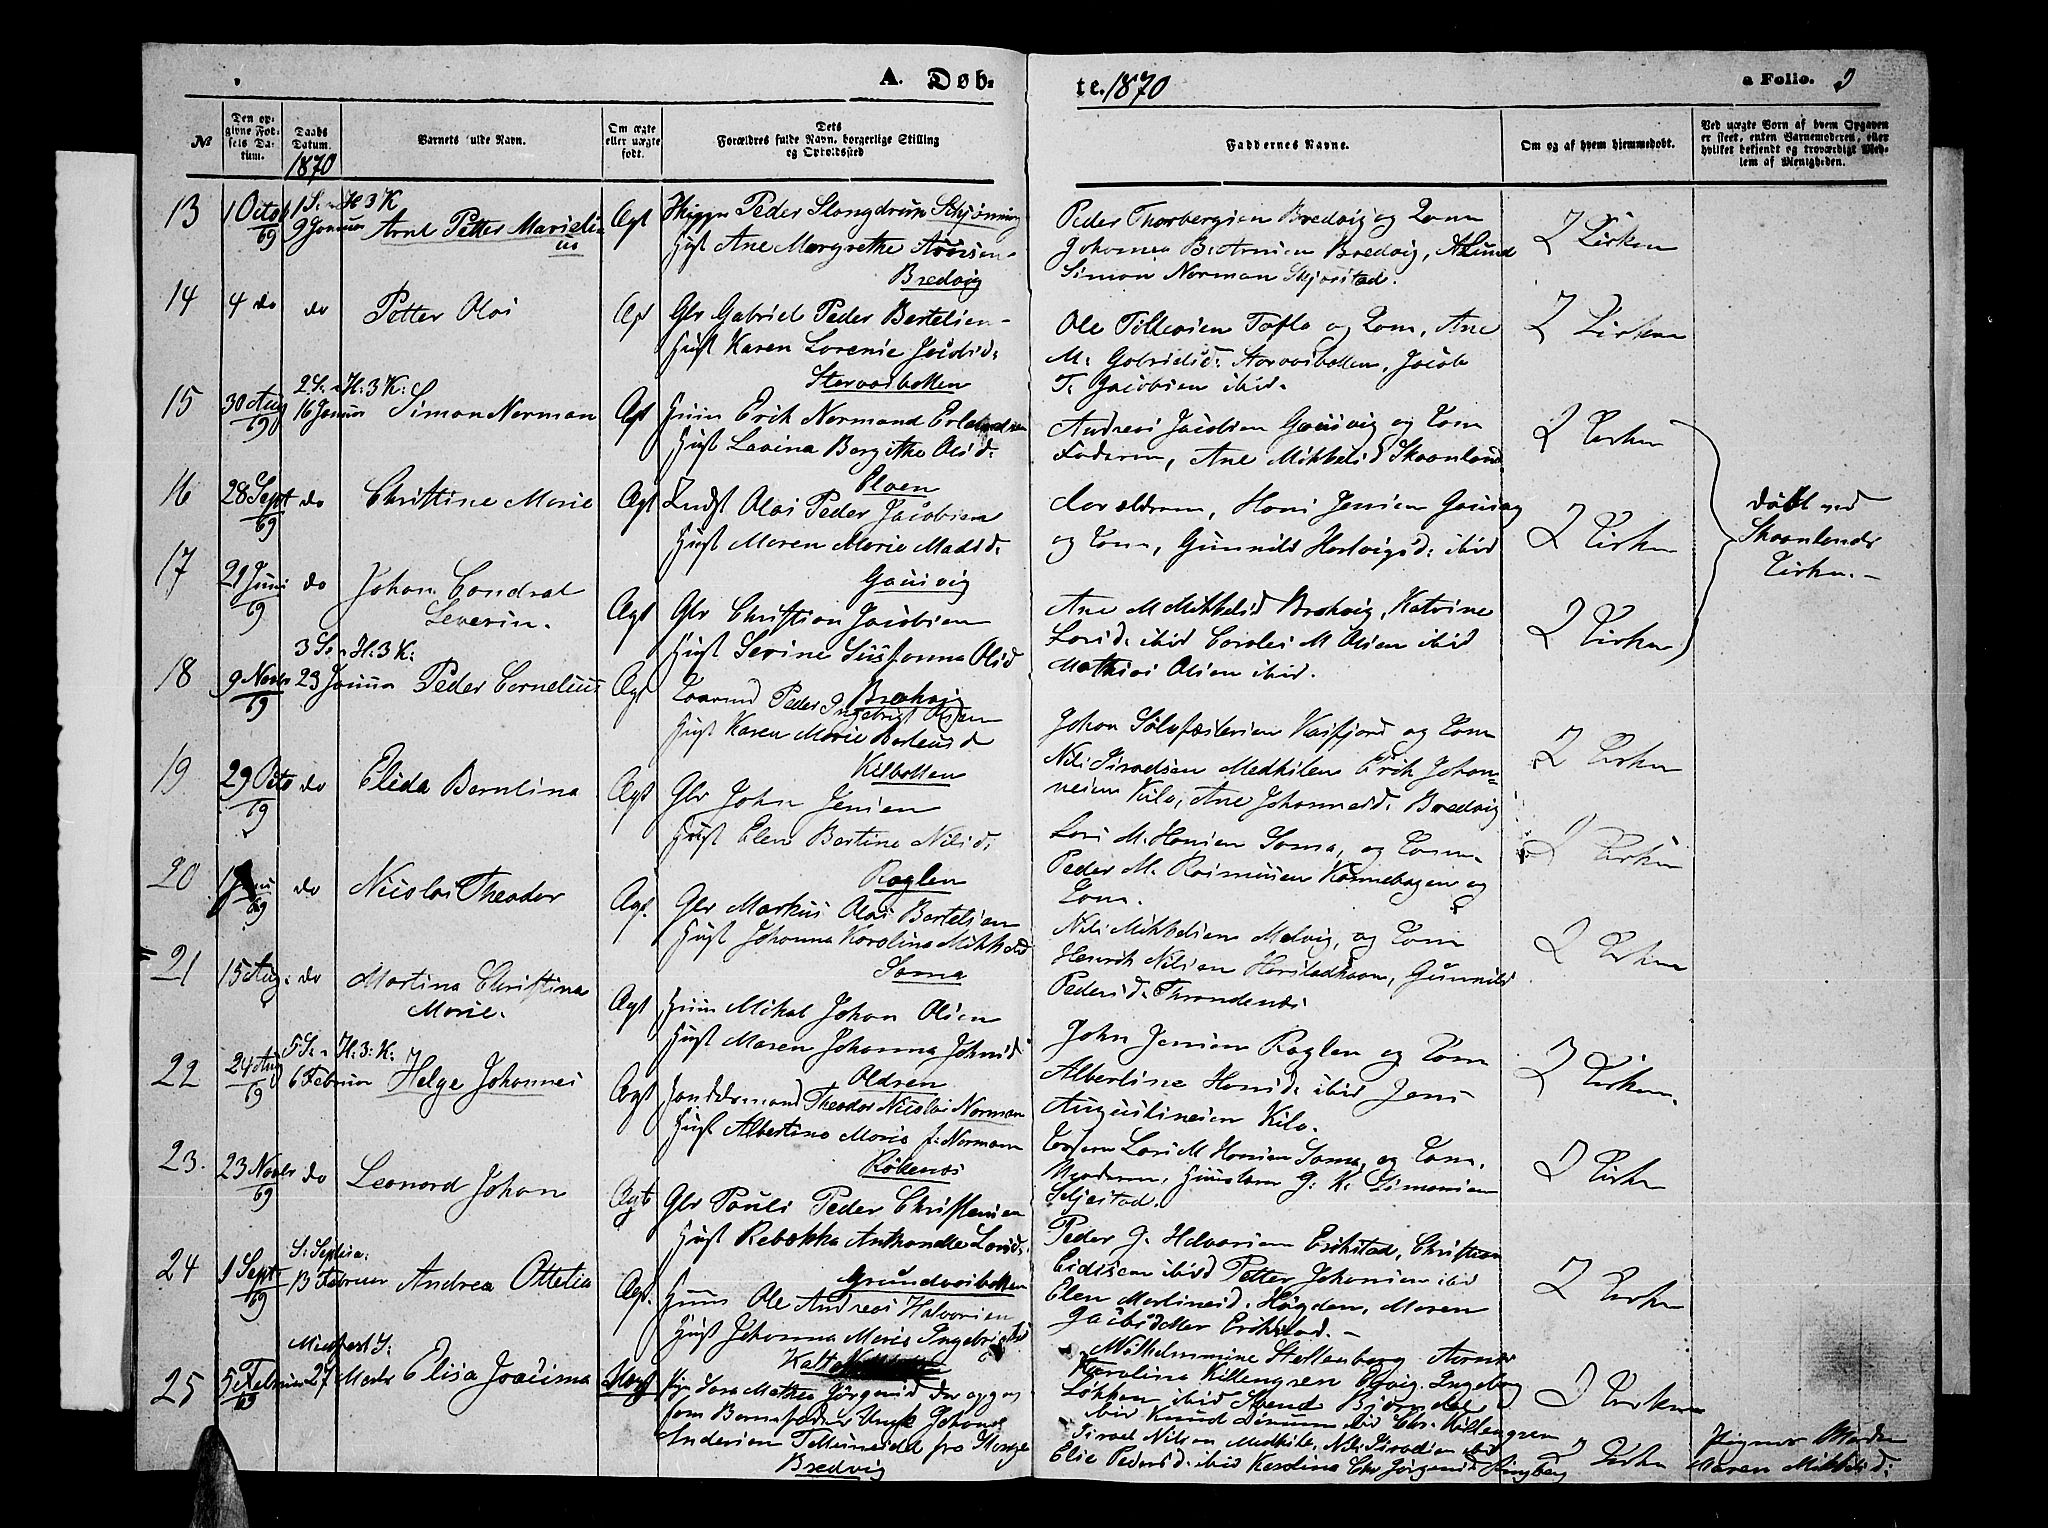 A. Døb-
te. 1870
a Folio. 3
No
Den op-
givne Fød-
sels Da-
tum.
Daabs
Datum.
1870
Barnets fulde Navn.
Om ægte
eller uægte
født.
Dets
Forældres fulde Navn, borgerlige Stilling
og Opholdssted
Faddernes Navne.
Om og af hvem hjemmedøbt.
Ved uægte Børn af hvem Opgaven
er skeet, enten Barnemoderen, eller
hvilket bekjendt og troværdigt Med-
lem af Menigheden.
13
1 Octob
69
1 S. e H 3 K
9 Januar
Arnt Petter Marieli-
us
Ægt
Peder Slangdrup Schjönning
Hust Ane Margrethe
Bredvig
Peder Thorbergsen Bredvig og Kone
Johannes B. Arnsen Bredvig, A Lund
Simon Norman
I Kirken
14
4 do
do
Petter Olai
Gbr Gabriel Peder Bertelsen
Hust Karen Lorense Jacobsd:
Storvasbotten
Ole Tollevsen Tofla og Kone, Ane
M. Gabrielsd: Storvasbotten, Jacob
T. Jacobsen ibid.
I Kirken
15
30 Aug
69
2 S. e H: 3 K:
16 Januar
Simon Norman
Ægt
Huusm Erik Normand Erlandsen
Hust Lavina Bergithe Olsd:
Elven
Andreas Jacobsen Gausvig og Kone
Faderen, Ane Mikkelsd Skaanland
I Kirken
16
28 Sept
69
do
Christine Marie
Ægt
Indst Olai Peder Jacobsen
Hust Maren Marie Madsd:
Gausvig
Forældrene, Hans Jensen Gausvig
og Kone, Gunnild Hartvigsd: ibid
I Kirken
døbt ved
Skaanlands
Kirke.-
17
21 Juni
69
do
Johan Condrat
Severin.
Ægt
Gbr Christian Jacobsen
Hust Serine Susanna Olsd
Breivig
Ane M Mikkelsd Brekvig, Katrine
Larsd: ibid Corolei M Olsen ibid
Mathias Olsen ibid.
I Kirken
18
9 Novbr
69
3 S. e H: 3 K:
23 Januar
Peder Cornelius
Ægt
Peder Ingebrigt Olsen
Hust Karen Marie Berteusd
Kilbotten
Johan Sölvfæstersen Kasfjord og Kone
Nils Israelsen Medkilen Erik Johan-
nesen Kilo, Ane Johannesd: Bredvig
I Kirken
19
29 Octo
69
do
Elida Bernlina
Ægt
Gbr John Jensen
Hust Elen Bertine Nilsd:
Roglen
Lars M. Hansen Sama, og Kone
Peder M. Rasmussen Kannebogen og
Kone.
I Kirken
20
69
do
Nicolai Theodor
Ægt.
Gbr Markus Olai Bertelsen
Hust Johanna Karoline Mikkelsd
Sama
Nils Mikkelsen Melvig, og Kone
Henrik Nilsen Harstadhavn, Gunnild
Pedersd: Throndenæs
I Kirken
21
15 Aug.
do
Martina Christina
Marie.
Ægt
Huusm Mikal Johan Olsen
Hust Maren Johanna Johnsd
Aldren
John Jensen Roglen og Kone
Albertine Hansd: ibid Jens
Augustinesen Kilo.
I Kirken.
22
24 Aug
69
5 S. e H: 3: K:
6 Februar
Helge Johannes
Ægt
Handelsmand Theodor Nicolai Norman
Hust Albertine Marie f. Normann
Rökenæs
Lars M Hansen Sama, og Kone,
Moderen, G. K. Simonsen
Seljestad.
I Kirken
23.
23 Novbr
69
do
Leonard Johan
Ægt
Gbr Pauli Peder Christensen
Hust Rebekka Anthonette Larsd:
Grundvasbotten
Peder J. Halvorsen Erikstad, Christian
Eidissen ibid Petter Johansen ibid
Elen Martinesd: Högden, Maren
Jacobsdatter Erikstad. -
I Kirken
24
1 Sept
69
S. Septua:
13 Februar
Andrea Ottelia
Ægt.
Huusm Ole Andreas Halvorsen
Hust Johanna Marie Ingebrigtsd
Wilhelmmine Stellenberg Aarnes
Karoline Killengren Ervig, Ingeborg
Løkken ibid Svend Bjørndal
ibid Knud ibid Chr. Killengren
I Kirken
25
5 Februar
69
Midfast S:
27 Marts
Elisa Joacima
Uægt
Pige Sara Mathea Jörgensd der opgav
som Barnefader Ungk Johan
Andersen Tellunesdal fra Stange
Bredvig
Israel Nilsen Medkile, Nils Israelsen ibid
Elie Pedersd: ibid Karolina Chr Jörgensd Ringberg
I Kirken
Pigens Moder
Maren Mikkelsd: